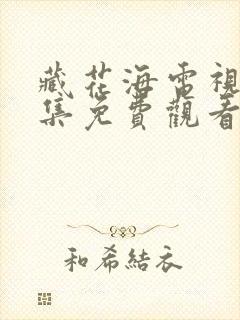 藏花海電視
集免費觀看
和希結衣